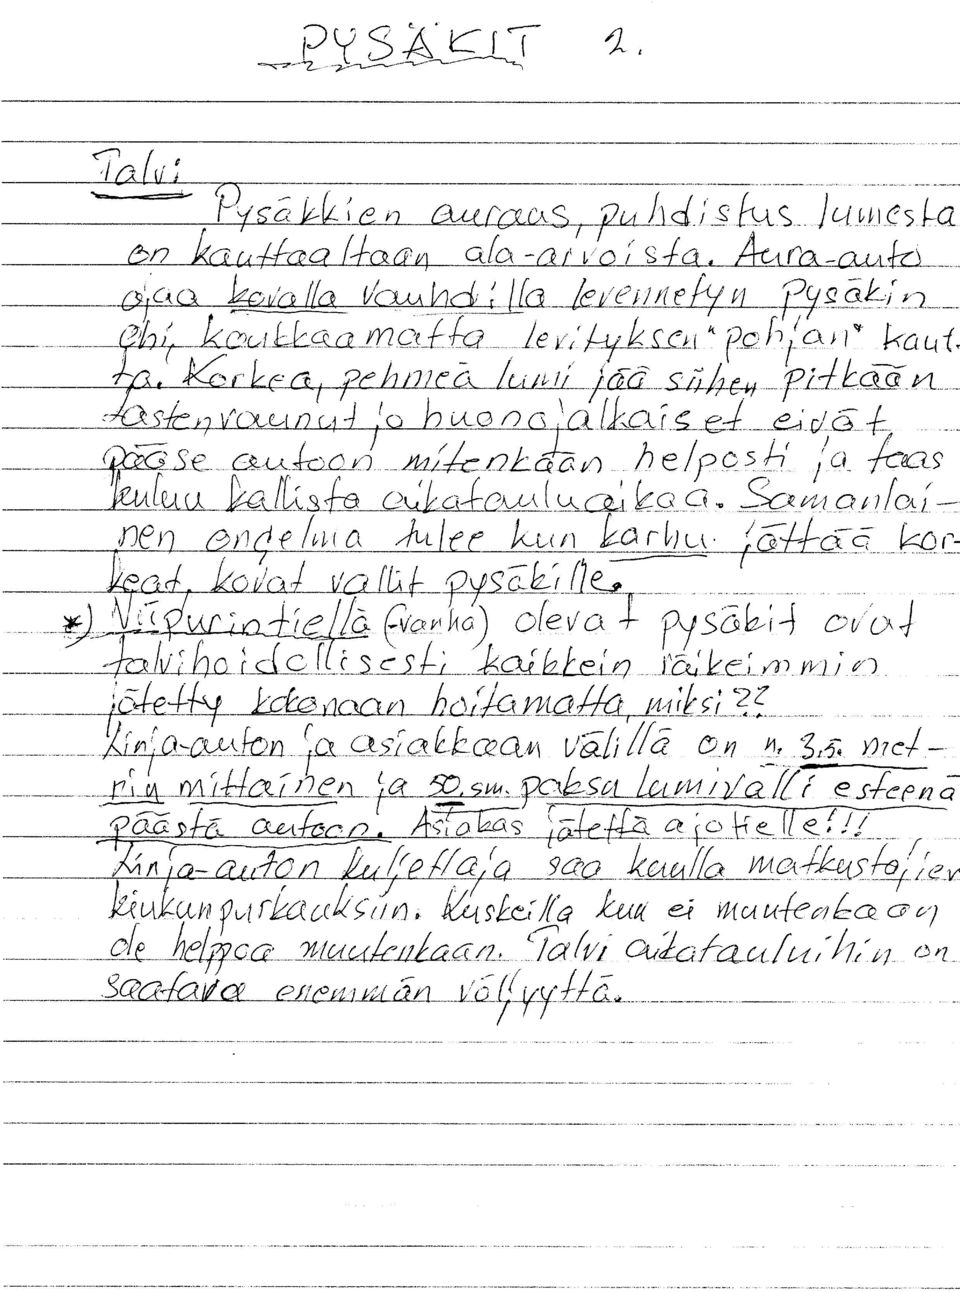 PYSÄKIT 2.
Talvi
Pysäkkien auraus, puhdistus lumesta
on kauttaaltaan ala-arvoista. Aura-auto
ajaa kovalla vauhdilla levennetyn pysäkin
ohi, koukkaamatta levityksen "pohjan" kaut-
ta. Korkea, pehmeä lumi jää siihen pitkään
lastenvaunut ja huonojalkaiset eivät
pääse autoon mitenkään helposti ja taas
kuluu kallista aikatauluaikaa. Samanlai-
nen ongelma tulee kun karhu jättää kor-
keat, kovat vallit pysäkille.
*) Viipurintiellä (-vanha) olevat pysäkit ovat
talvihoidollisesti kaikkein räikeimmin
jätetty kokonaan hoitamatta, miksi??
Linja-auton ja asiakkaan välillä on n. 3,5. met-
rin mittainen ja 50.sm. paksu lumivalli esteenä
päästä autoon. Asiakas jätettä ajotielle!!!
Linja-auton kuljettaja saa kuulla matkustajien
kiukunpurkauksiin. Kuskeilla kun ei muutenkaan
ole helppoa muutenkaan. Talvi aikatauluihin on
saatava enemmän väljyyttä.